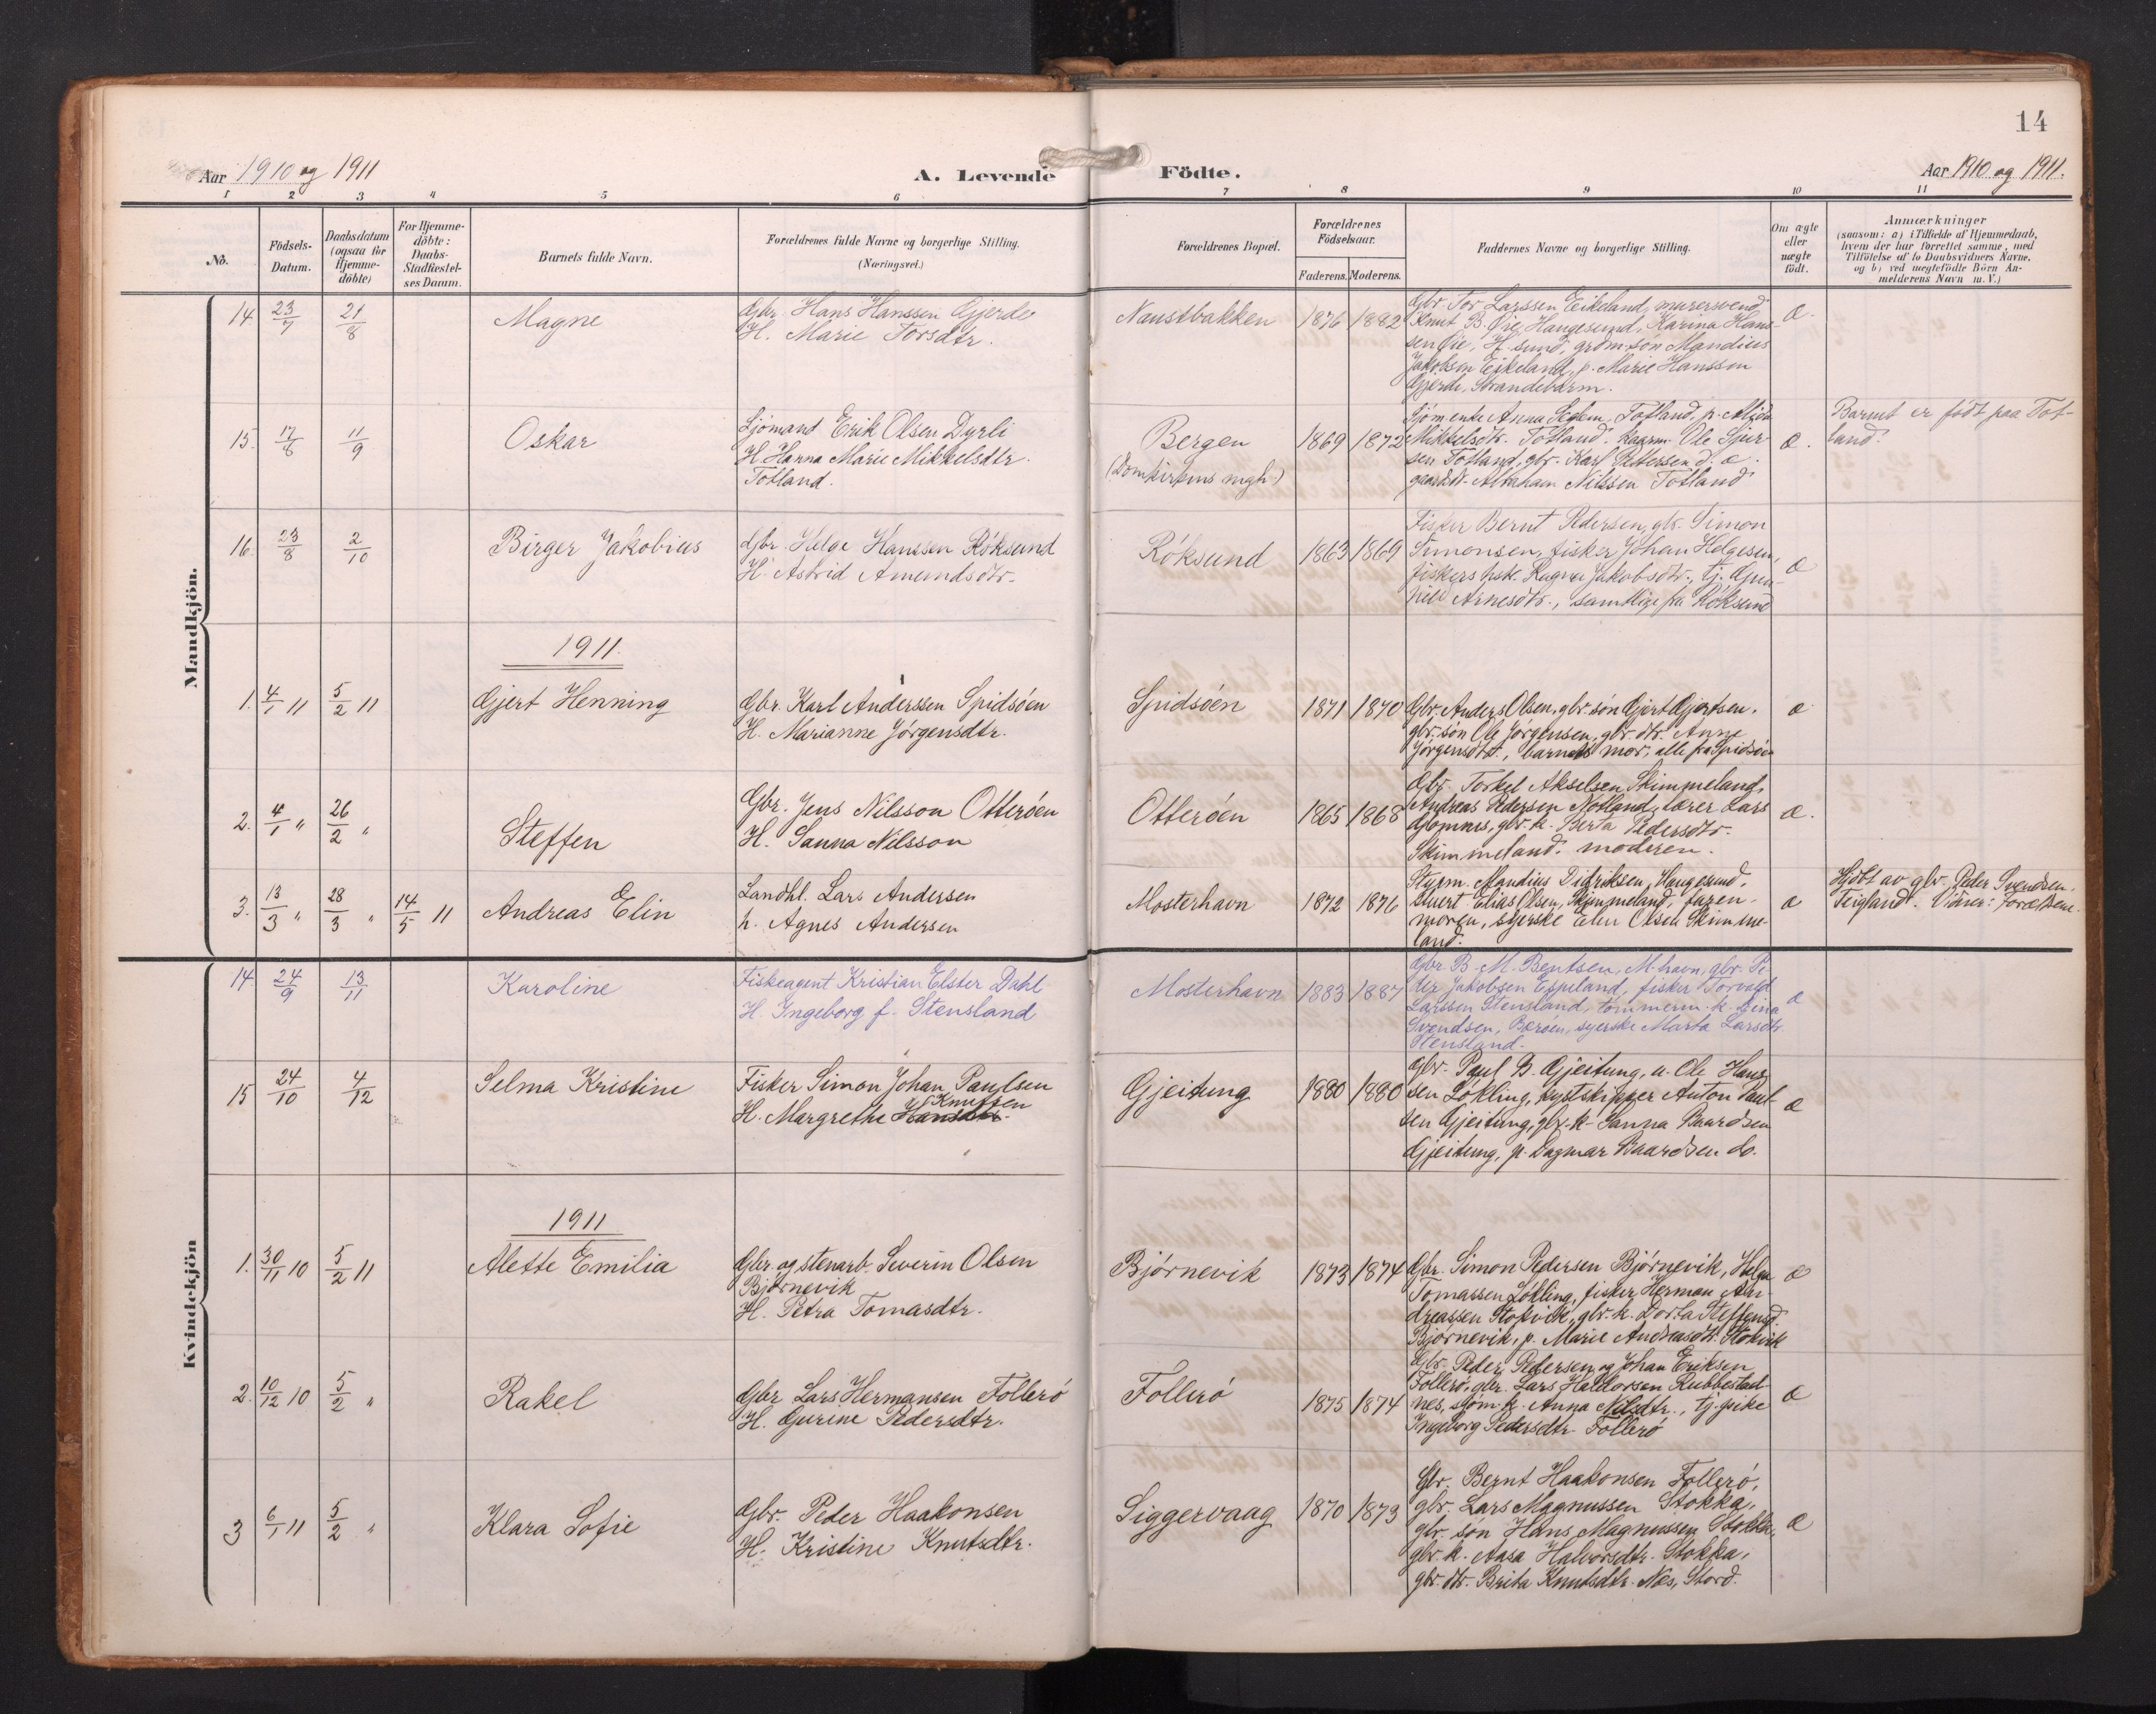 14
Aar 1910 og 1911
A. Levende Födte.
Aar 1910 og 1911.
1 2 3 4 5 6 7 8 9 10 11
No.
Födsels-
Datum.
Daabsdatum
(ogsaa for
Hjemme-
döbte)
For Hjemme-
döbte:
Daabs-
Stadfæstel-
ses Datum.
Barnets fulde Navn.
Forældrenes fulde Navne og borgerlige Stilling.
(Næringsvei.)
Forældrenes Bopæl.
Forældrenes
Födselsaar.
Faderens. Moderens.
Faddernes Navne og borgerlige Stilling.
Om ægte
eller
uægte
födt.
Anmærkninger
(saasom: a) i Tilfælde af Hjemmedaab,
hvem der har forrettet samme, med
Tilföielse af to Daabsvidners Navne,
og b) ved uegtefödte Börn An-
melderens Navn m.V.)
Mandkjön.
14 23/7 21/8
Magne
Gbr. Hans Hanssen Gjerde
H. Marie Torsdtr.
Naustbakken
1876 1882
Gbr. Tor Larssen Eikeland, murersvend
Knut B. Øie, Haugesund, Karina Hans-
sen Øie, H.sund, grdm.søn Mandius
Jakobsen Eikeland, p. Marie Hanssen
Gjerde, Strandebarm.
æ.
15. 17/8 11/9
Oskar
Sjömand Erik Olsen Dyrli
H. Hanna Marie Mikkelsdtr.
Totland.
Bergen
(Domkirkens mgh.)
1869 1872
Sjöm.enke Anna Totland, p.
Mikkelsdtr. Totland. Ole Sjur-
sen Totland, gbr. Karl Pettersen d.
Abraham Nilssen Totland
æ.
Barnet er født paa Tot-
land.
16. 23/8 2/10
Birger Jakobius
Gbr. Helge Hanssen Röksund
H. Astrid Amundsdtr.
Röksund
1863 1869
Fisker Bernt Pedersen, gbr. Simon
Simonsen, fisker Johan Helgesen,
fiskers hsk. Ragna Jakobsdtr., tj. Gun-
hild Arnesdtr., samtlige fra Röksund
æ
1911.
1. 4/1 11 5/2 11
Gjert Henning
Gbr. Karl Anderssen Spidsöen
H. Marianne Jörgensdtr.
Spidsöen
1871 1870
Gbr. Anders Olsen, gbr. søn Gjert Gjertsen,
gbr. søn Ole Jörgensen, gbr. dtr. Anne
Jörgensdtr., barnets mor, alle fra Spidsöen
æ
2. 4/1 " 26/2 "
Steffen
Gbr. Jens Nilsson Otteröen
H. Sanna Nilsson
Otteröen
1865 1868
Gbr. Torkel Akselsen Skimmeland,
Andreas Pedersen Notland, lærer Lars
gbr. k. Berta Pedersdtr.
Skimmeland. moderen.
æ.
3. 13/3 " 28/3 " 14/5 11
Andreas Elin
Landhl. Lars Andersen
h. Agnes Andersen
Mosterhavn
1872 1876
Styrm. Mandius Didriksen, Haugesund,
Elias Olsen, Skimmeland, faren,
moren, syerske Elen Olsen Skimme-
land.
æ
Hjdbt av gbr. Peder Svendsen,
Teigland. Vidner: Forældrene.
Kvindekjön
14. 24/9 13/11
Karoline
Fiskeagent Kristian Elster Dahl
H. Ingeborg f. Stensland
Mosterhavn
1883 1887
Gbr. B. M. Bentsen, M.havn, gbr. Pe-
der Jakobsen Espeland, fisker Torvald
Larssen Stensland, tömmerm. k. Lina
Svendsen, Beröen, syerske Marta Larsdtr.
Stensland.
æ
15 24/10 4/12
Selma Kristine
Fisker Simon Johan Paulsen
Knutsen
H. Margrethe Hansdtr.
Gjeitung
1880 1880
Gbr. Paul B. Gjeitung, u. Ole Hans-
sen Løkling, kystskipper Anton Paul-
sen Gjeitung, gbr. k. Sanna Baardsen
Gjeitung, p. Dagmar Baardsen do.
æ
1911
1. 30/11 10 5/2 11
Alette Emilia
Gbr. og stenarb. Severin Olsen
Bjørnevik
H. Petra Tomasdtr.
Bjørnevik
1873 1874
Gbr. Simon Pedersen Bjørnevik, Helge
Tomassen Løkling, fisker Herman An-
dreassen Stokvik, gbr. k. Dorta Steffensd.
Bjørnevik, p. Marie Andreasdtr. Stokvik
æ
2. 10/12 10 5/2 "
Rakel
Gbr. Lars Hermansen Follerö
H. Gurine Pedersdtr.
Follerö
1875 1874
Gbr. Peder Pedersen og Johan Eriksen
Follerö, gbr. Lars Haldorsen Rubbestad-
nes, sjöm. k. Anna Nilsdtr., tj. pike
Ingeborg Pedersdtr. Follerö
æ
3 6/1 11 5/2 "
Klara Sofie
Gbr. Peder Haakonsen
H. Kristine Knutsdtr.
Siggervaag
1870 1873
Gbr. Bernt Haakonsen Follerö,
gbr. Lars Magnussen Stokka,
gbr. søn Hans Magnussen Stokka,
gbr. k. Aasa Halvorsdtr. Stokka,
gbr. dtr. Brita Knutsdtr. Næs, Stord.
æ